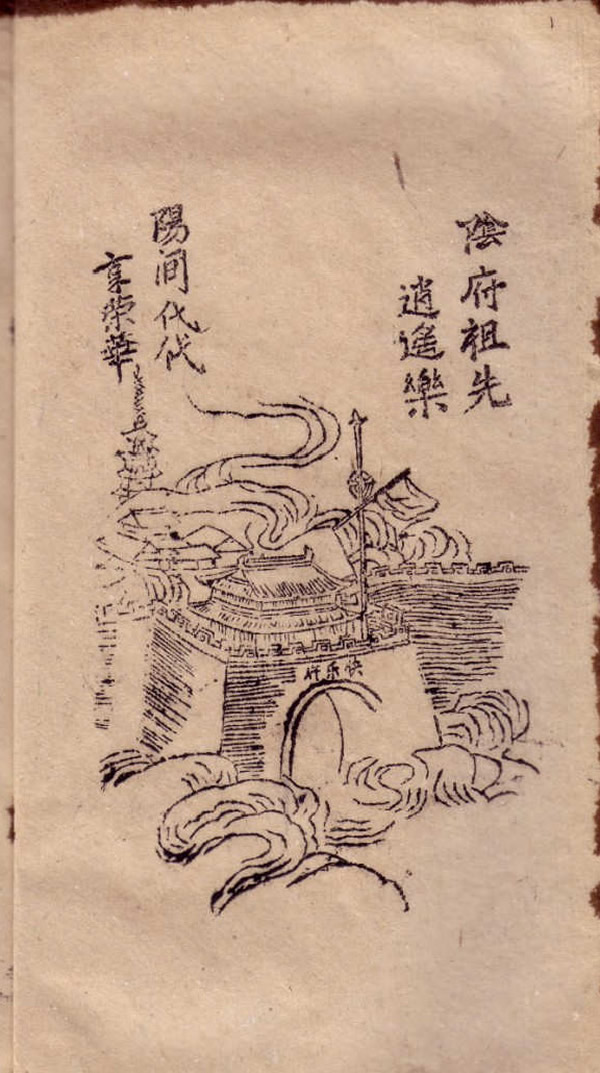 陰府祖先
逍遙樂
陽间代代
享荣華
快乐